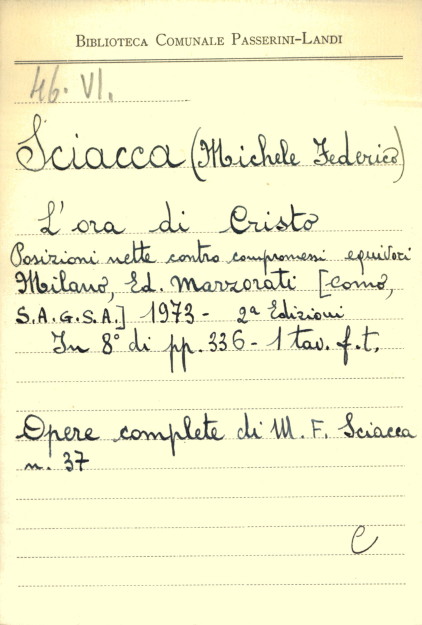 BIBLIOTECA COMUNALE PASSERINI-LANDI
46. VI.
Sciacca (Michele Federico)
L'ora di Cristo
Posizioni nette contro compromessi equivoci
Milano, Ed. Marzorati [Como,
S.A.G.S.A.] 1973 - 2ª Edizioni
In 8° di pp. 336 - 1 tav. f. t.
Opere complete di M. F. Sciacca
n. 37
C